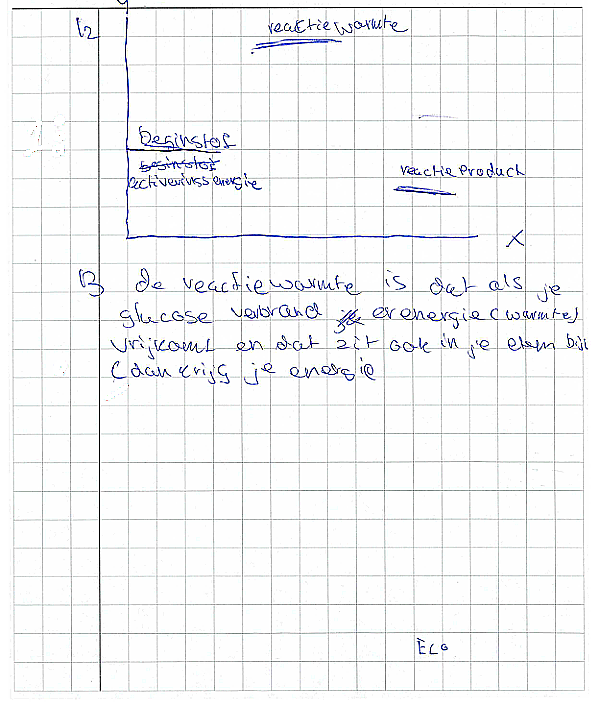 12
reactiewarmte
Beginstof
beginstof
activerings energie
reactie Product
X
13 de reactiewarmte is dat als je
glucose verbrand er energie (warmte)
vrijkomt en dat zit ook in je eten bij
(dan krijg je energie